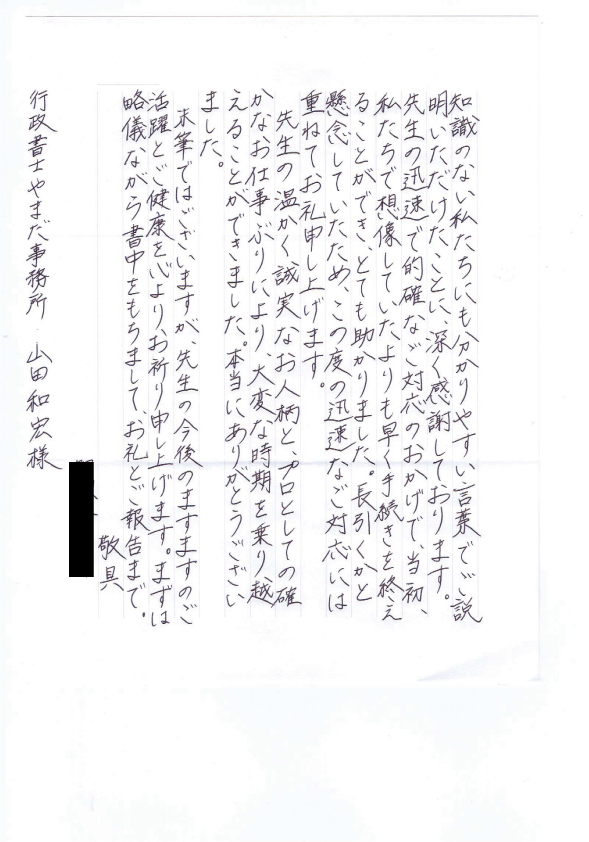 知識のない私たちにも分かりやすい言葉でご説
明いただけたことに、深く感謝しております。
先生の迅速で的確なご対応のおかげで、当初、
私たちで想像していたよりも早く手続きを終え
ることができ、とても助かりました。長引くかと
懸念していたため、この度の迅速なご対応には
重ねてお礼申し上げます。
先生の温かく誠実なお人柄と、プロとしての確
かなお仕事ぶりにより、大変な時期を乗り越
えることができました。本当にありがとうござい
ました。
末筆ではございますが、先生の今後のますますのご
活躍とご健康を心よりお祈り申し上げます。まずは
略儀ながら書中をもちまして、お礼とご報告まで。
敬具
行政書士やまだ事務所 山田和宏様